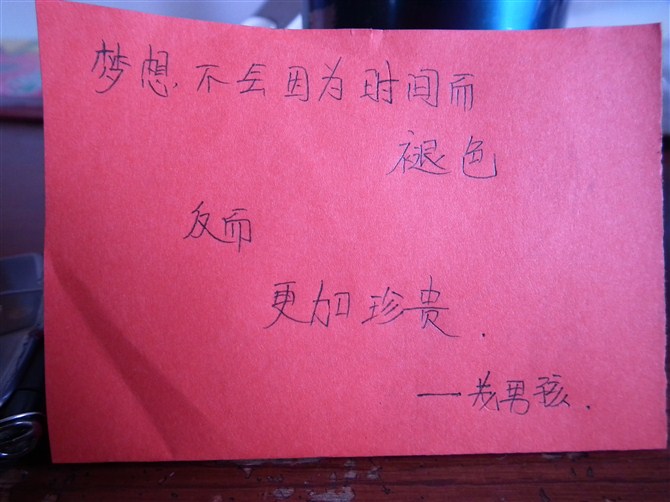 梦想.不会因为时间而
褪色
反而
更加珍贵.
——男孩.